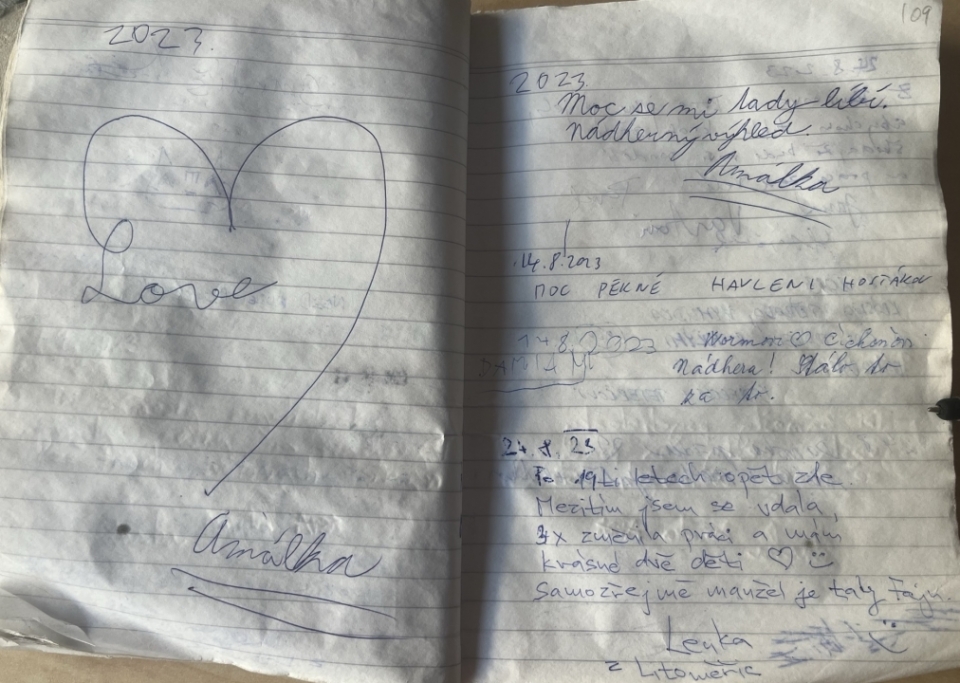 2023.
Love
Amálka
109
2023
Moc se mi tady líbí.
Nádherný výhled.
Amálka
14.8.2023
MOC PĚKNÉ HAVLENI HOSŤÁKOV
14 8 2023
DAMIÁN
Nádhera! Stálo to
za to.
24. 8. 23
Po 19ti letech opět zde.
Mezitím jsem se vdala,
3x změnila práci a mám
krásné dvě děti ♡ ☺
Samozřejmě manžel je taky fajn.
Lenka
z Litoměřic